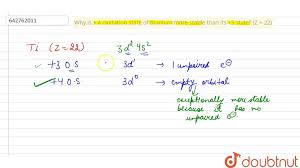 642762011
Why is +4 oxidation state of titanium more stable than its +3 state? (Z = 22)
Ti (Z=22) 3d² 4s²
+3 O.S 3d¹ → 1 unpaired e⊖
✓ +4 O.S 3d⁰ → empty orbital
exceptionally more stable
because it has no
unpaired e⊖
doubtnut